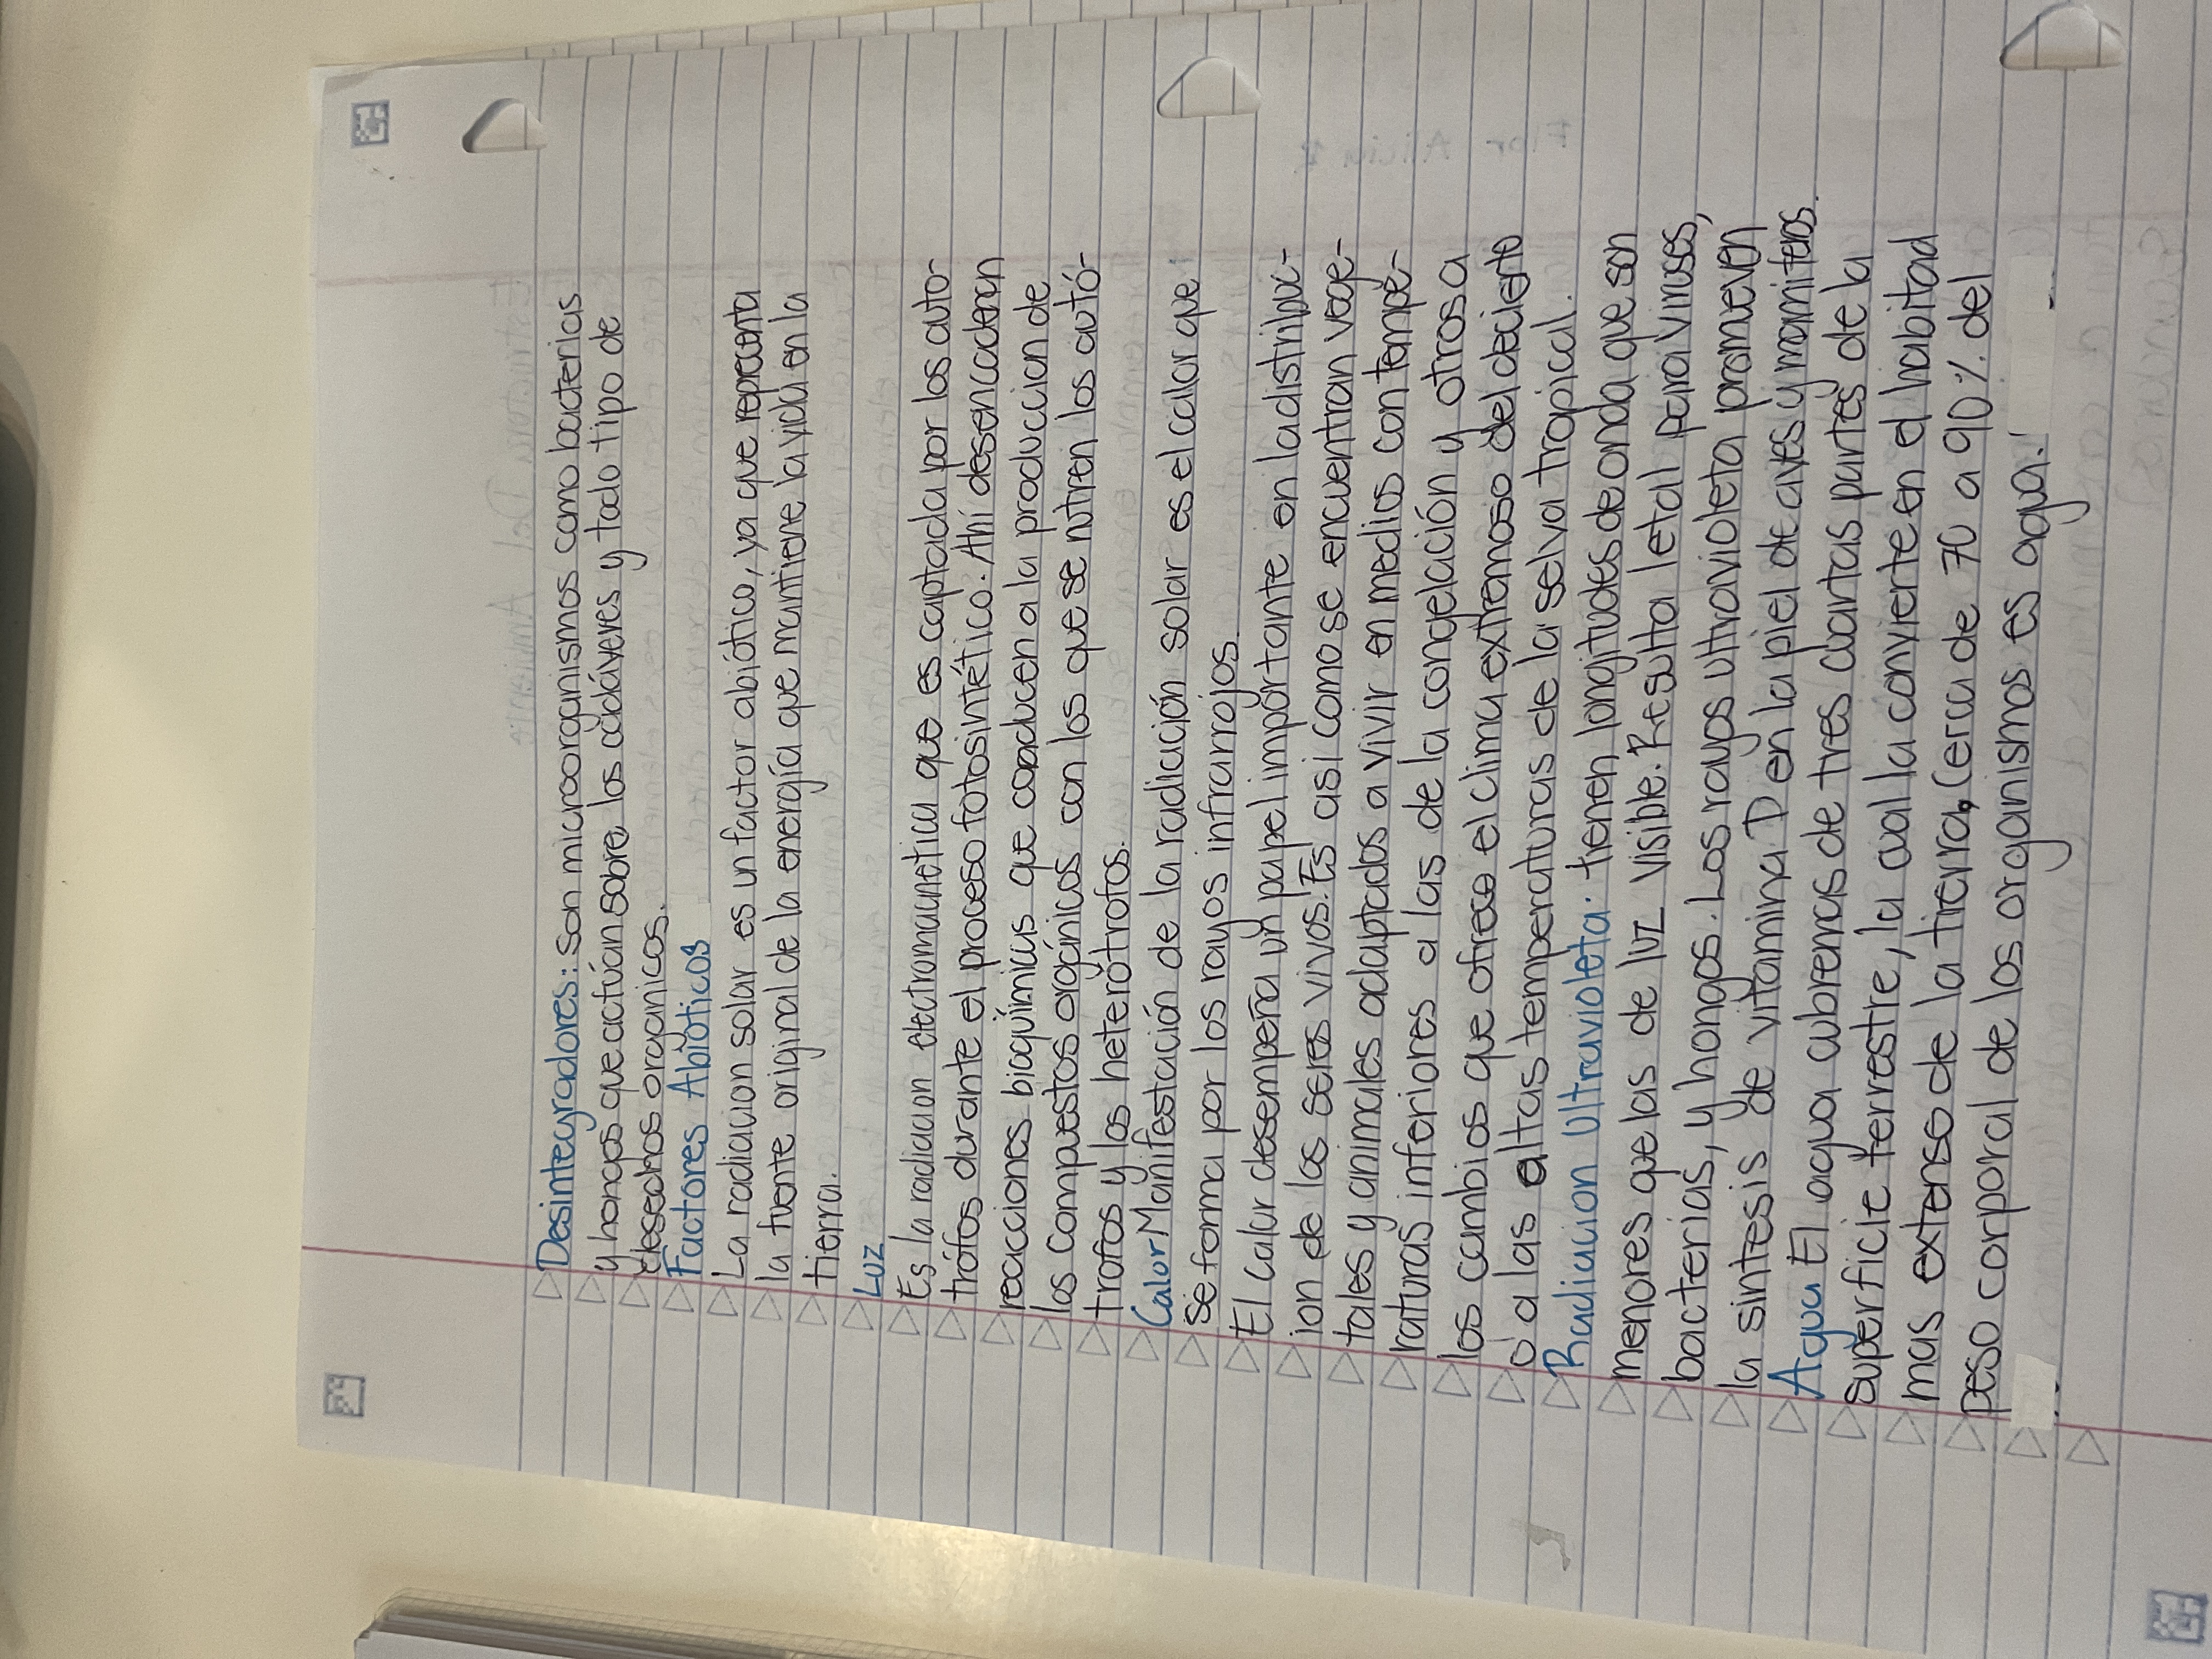 Desintegradores: Son microorganismos como bacterias
y hongos que actúan sobre los cadáveres y todo tipo de
desechos organicos.
Factores Abióticos
La radiacion solar es un factor abiótico, ya que representa
la fuente original de la energía que mantiene la vida en la
tierra.
Luz
Es la radiacion electromagnetica que es captada por los auto-
trófos durante el proceso fotosintético. Ahí desencadenan
reacciones bioquímicas que conducen a la produccion de
los compuestos orgánicos con los que se nutren los autó-
trofos y los heterótrofos.
Calor Manifestación de la radiación solar es el calor que
se forma por los rayos infrarrojos.
El calor desempeña un papel importante en la distribuc-
ion de los seres vivos. Es asi como se encuentran vege-
tales y animales adaptados a vivir en medios con tempe-
raturas inferiores a las de la congelación y otros a
los cambios que ofrece el clima extremoso del decierto
o a las altas temperaturas de la selva tropical.
Radiacion Ultravioleta: tienen longitudes de onda que son
menores que las de luz visible. Resulta letal para viruses,
bacterias, y hongos. Los rayos ultravioleta promueven
la sintesis de vitamina D en la piel de aves y mamiferos.
Agua El agua cubre mas de tres cuartas partes de la
superficie terrestre, la cual la convierte en el habitad
mas extenso de la tierra, Cerca de 70 a 90% del
peso corporal de los organismos es agua.